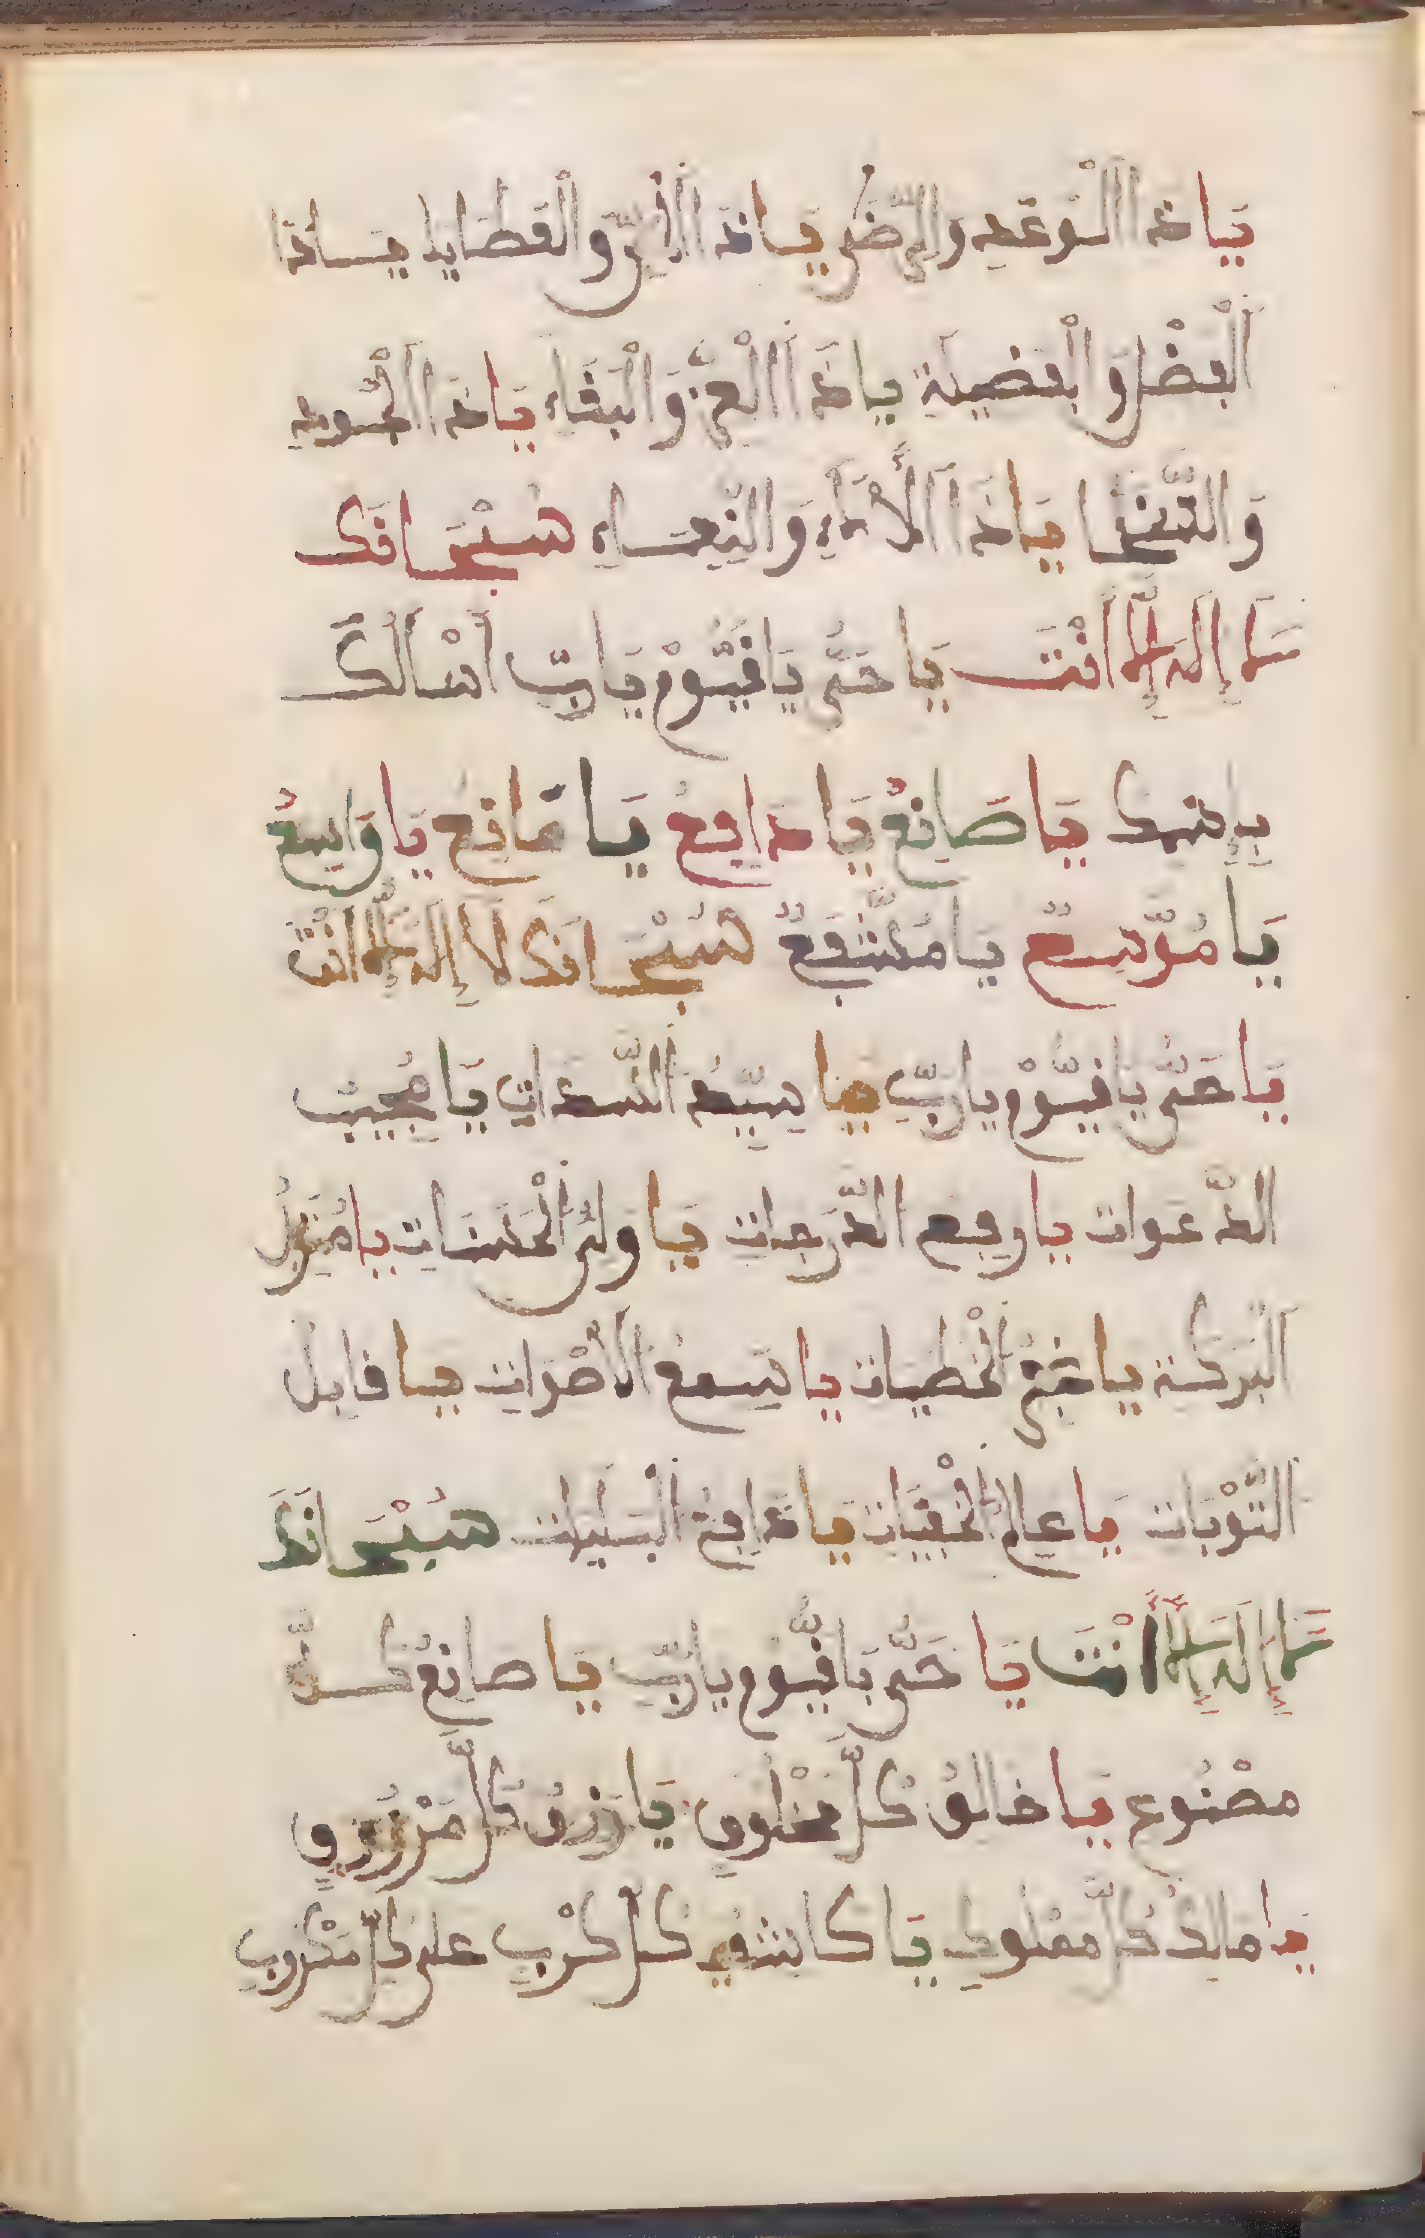 يَا ذَا الْوَعْدِ وَالرِّضَى يَا ذَا الْمَنِّ وَالْعَطَايَا يَا ذَا
اَلْفَضْلِ وَالْفَضِيلَةِ يَا ذَا الْعِزِّ وَالْبَقَاءِ يَا ذَا الْجُودِ
وَالسَّخَا يَا ذَا اَلْأَلَاءِ وَالنِّعْمَاءِ سُبْحَانَكَ
لَا إِلَهَ إِلَّا أَنْتَ يَا حَيُّ يَا قَيُّوْمُ يَا رَبِّ أَسْأَلُكَ
بِإِسْمِكَ يَا صَانِعُ يَا دَافِعُ يَا نَافِعُ يَا وَاسِعُ
يَا مُوَسِّعُ يَا مُشَفِّعُ سُبْحَانَكَ لَا إِلَهَ إِلَّا أَنْتَ
يَا حَيُّ يَا قَيُّوْمُ يَا رَبِّ يَا سَيِّدَ السَّدَاتِ يَا مُجِيبَ
الدَّعَوَاتِ يَا رَفِيعَ الدَّرَجَاتِ يَا وَلِيَّ الْحَسَنَاتِ يَا مُنَزِّلُ
الْبَرَكَةِ يَا الْخَطِيَاتِ يَا سَمِيعُ الْأَصْوَاتِ يَا قَابِلُ
التَّوْبَاتِ يَا عَالِمَ الْخَفِيَّاتِ يَا دَافِعُ الْبَلِيَاتِ سُبْحَانَكَ
لَا إِلَهَ إِلَّا أَنْتَ يَا حَيُّ يَا قَيُّوْمُ يَا رَبِّ يَا صَانِعُ كُلِّ
مَصْنُوعٍ يَا خَالِقُ كُلِّ مَخْلُوقٍ يَا رَزِقُ كُلِّ مَرْزُوقٍ
يَا مَالِكُ كُلِّ مَمْلُوكٍ يَا كَاشِفُ كُلِّ كَرْبٍ عَلَى كُلِّ مَكْرُوبٍ